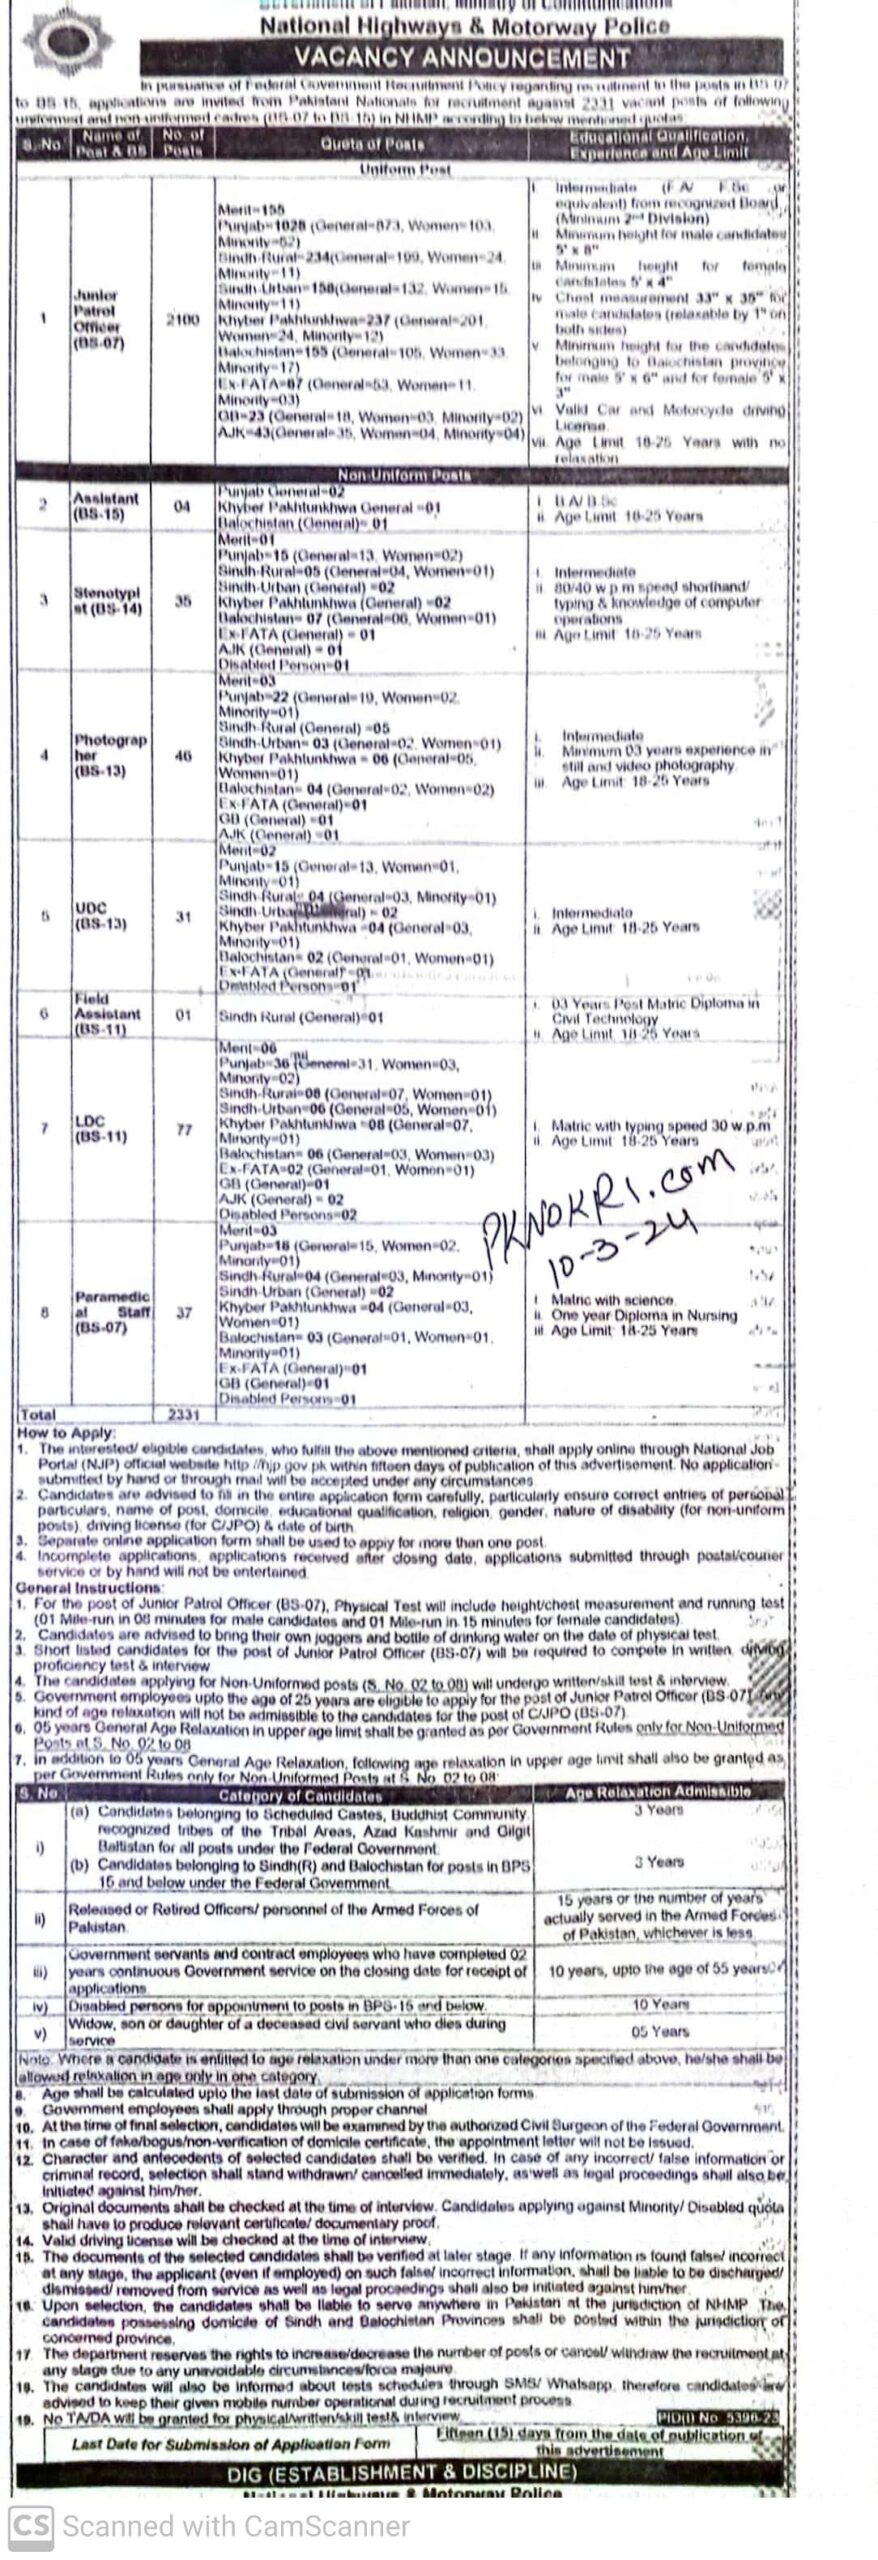 Government of Pakistan, Ministry of Communications
National Highways & Motorway Police
VACANCY ANNOUNCEMENT
In pursuance of Federal Government Recruitment Policy regarding recruitment to the posts in BS-07
to BS-15, applications are invited from Pakistani Nationals for recruitment against 2331 vacant posts of following
uniformed and non-uniformed cadres (BS-07 to BS-15) in NHMP according to below mentioned quotas
S. No Name of Post & BS No. of Posts Quota of Posts Educational Qualification, Experience and Age Limit
Uniform Post
1
Junior
Patrol
Officer
(BS-07)
2100
Merit=155
Punjab=1028 (General=873, Women=103,
Minority=52)
Sindh Rural=234(General=199, Women=24,
Minority=11)
Sindh Urban=158(General=132, Women=15,
Minority=11)
Khyber Pakhtunkhwa=237 (General=201,
Women=24, Minority=12)
Balochistan=155 (General=105, Women=33,
Minority=17)
Ex-FATA=67 (General=53, Women=11,
Minority=03)
GB=23 (General=18, Women=03, Minority=02)
AJK=43(General=35, Women=04, Minority=04)
i. Intermediate (F.A/ F.Sc or
equivalent) from recognized Board
(Minimum 2nd Division)
ii Minimum height for male candidates
5' x 8"
iii Minimum height for female
candidates 5' x 4"
iv Chest measurement 33" x 35" for
male candidates (relaxable by 1" on
both sides)
v. Minimum height for the candidates
belonging to Balochistan province
for male 5' x 6" and for female 5' x
3"
vi Valid Car and Motorcycle driving
License.
vii. Age Limit 18-25 Years with no
relaxation
Non-Uniform Posts
2
Assistant
(BS-15)
04
Punjab General=02
Khyber Pakhtunkhwa General =01
Balochistan (General)= 01
i. B.A/ B.Sc
ii. Age Limit 18-25 Years
3
Stenotypi
st (BS-14)
35
Merit=01
Punjab=15 (General=13, Women=02)
Sindh-Rural=05 (General=04, Women=01)
Sindh-Urban (General) =02
Khyber Pakhtunkhwa (General) =02
Balochistan= 07 (General=06, Women=01)
Ex-FATA (General) = 01
AJK (General) = 01
Disabled Person=01
i. Intermediate
ii 80/40 w.p.m speed shorthand/
typing & knowledge of computer
operations
iii Age Limit 18-25 Years
4
Photograp
her
(BS-13)
46
Merit=03
Punjab=22 (General=19, Women=02,
Minority=01)
Sindh-Rural (General) =05
Sindh-Urban= 03 (General=02, Women=01)
Khyber Pakhtunkhwa = 06 (General=05,
Women=01)
Balochistan= 04 (General=02, Women=02)
Ex-FATA (General)=01
GB (General) =01
AJK (General) =01
i. Intermediate
ii. Minimum 03 years experience in
still and video photography.
iii. Age Limit 18-25 Years
5
UDC
(BS-13)
31
Merit=02
Punjab=15 (General=13, Women=01,
Minority=01)
Sindh-Rural= 04 (General=03, Minority=01)
Sindh-Urban (General) = 02
Khyber Pakhtunkhwa =04 (General=03,
Minority=01)
Balochistan= 02 (General=01, Women=01)
Ex-FATA (General) =01
Disabled Persons=01
i. Intermediate
ii Age Limit 18-25 Years
6
Field
Assistant
(BS-11)
01
Sindh Rural (General)=01
i. 03 Years Post Matric Diploma in
Civil Technology
ii. Age Limit 18-25 Years
7
LDC
(BS-11)
77
Merit=06
Punjab=36 (General=31, Women=03,
Minority=02)
Sindh-Rural=08 (General=07, Women=01)
Sindh-Urban=06 (General=05, Women=01)
Khyber Pakhtunkhwa =08 (General=07,
Minority=01)
Balochistan= 06 (General=03, Women=03)
Ex-FATA=02 (General=01, Women=01)
GB (General)=01
AJK (General) = 02
Disabled Persons=02
i. Matric with typing speed 30 w.p.m
ii. Age Limit 18-25 Years
PKNOKRI.com
10-3-24
8
Paramedic
al Staff
(BS-07)
37
Merit=03
Punjab=18 (General=15, Women=02,
Minority=01)
Sindh-Rural=04 (General=03, Minority=01)
Sindh-Urban (General) =02
Khyber Pakhtunkhwa =04 (General=03,
Women=01)
Balochistan= 03 (General=01, Women=01,
Minority=01)
Ex-FATA (General)=01
GB (General)=01
Disabled Persons=01
i Matric with science.
ii. One year Diploma in Nursing
iii Age Limit 18-25 Years
Total 2331
How to Apply:
1. The interested/ eligible candidates, who fulfill the above mentioned criteria, shall apply online through National Job
Portal (NJP) official website http //njp gov pk within fifteen days of publication of this advertisement. No application
submitted by hand or through mail will be accepted under any circumstances.
2. Candidates are advised to fill in the entire application form carefully, particularly ensure correct entries of personal
particulars, name of post, domicile, educational qualification, religion, gender, nature of disability (for non-uniform
posts), driving license (for C/JPO) & date of birth.
3. Separate online application form shall be used to apply for more than one post.
4. Incomplete applications, applications received after closing date, applications submitted through postal/courier
service or by hand will not be entertained.
General Instructions:
1. For the post of Junior Patrol Officer (BS-07), Physical Test will include height/chest measurement and running test
(01 Mile-run in 08 minutes for male candidates and 01 Mile-run in 15 minutes for female candidates)
2. Candidates are advised to bring their own joggers and bottle of drinking water on the date of physical test.
3. Short listed candidates for the post of Junior Patrol Officer (BS-07) will be required to compete in written, driving
proficiency test & interview
4. The candidates applying for Non-Uniformed posts (S. No. 02 to 08) will undergo written/skill test & interview.
5. Government employees upto the age of 25 years are eligible to apply for the post of Junior Patrol Officer (BS-07). Any
kind of age relaxation will not be admissible to the candidates for the post of C/JPO (BS-07).
6. 05 years General Age Relaxation in upper age limit shall be granted as per Government Rules only for Non-Uniformed
Posts at S. No. 02 to 08
7. In addition to 05 years General Age Relaxation, following age relaxation in upper age limit shall also be granted as
per Government Rules only for Non-Uniformed Posts at S. No. 02 to 08:
S. No Category of Candidates Age Relaxation Admissible
i)
(a) Candidates belonging to Scheduled Castes, Buddhist Community,
recognized tribes of the Tribal Areas, Azad Kashmir and Gilgit
Baltistan for all posts under the Federal Government.
3 Years
(b) Candidates belonging to Sindh(R) and Balochistan for posts in BPS
15 and below under the Federal Government.
3 Years
ii)
Released or Retired Officers/ personnel of the Armed Forces of
Pakistan.
15 years or the number of years
actually served in the Armed Forces
of Pakistan, whichever is less.
iii)
Government servants and contract employees who have completed 02
years continuous Government service on the closing date for receipt of
applications
10 years, upto the age of 55 years
iv) Disabled persons for appointment to posts in BPS-15 and below. 10 Years
v) Widow, son or daughter of a deceased civil servant who dies during
service
05 Years
Note: Where a candidate is entitled to age relaxation under more than one categories specified above, he/she shall be
allowed relaxation in age only in one category.
8. Age shall be calculated upto the last date of submission of application forms
9. Government employees shall apply through proper channel
10. At the time of final selection, candidates will be examined by the authorized Civil Surgeon of the Federal Government.
11. In case of fake/bogus/non-verification of domicile certificate, the appointment letter will not be issued.
12. Character and antecedents of selected candidates shall be verified. In case of any incorrect/ false information or
criminal record, selection shall stand withdrawn/ cancelled immediately, as well as legal proceedings shall also be
initiated against him/her.
13. Original documents shall be checked at the time of interview. Candidates applying against Minority/ Disabled quota
shall have to produce relevant certificate/ documentary proof.
14. Valid driving license will be checked at the time of interview.
15. The documents of the selected candidates shall be verified at later stage. If any information is found false/ incorrect
at any stage, the applicant (even if employed) on such false/ incorrect information, shall be liable to be discharged/
dismissed/ removed from service as well as legal proceedings shall also be initiated against him/her.
16. Upon selection, the candidates shall be liable to serve anywhere in Pakistan at the jurisdiction of NHMP. The
candidates possessing domicile of Sindh and Balochistan Provinces shall be posted within the jurisdiction of
concerned province.
17. The department reserves the rights to increase/decrease the number of posts or cancel/ withdraw the recruitment at
any stage due to any unavoidable circumstances/force majeure.
18. The candidates will also be informed about tests schedules through SMS/ Whatsapp, therefore candidates are
advised to keep their given mobile number operational during recruitment process.
19. No TA/DA will be granted for physical/written/skill test& interview.
PID(I) No. 5396-23
Last Date for Submission of Application Form
Fifteen (15) days from the date of publication of
this advertisement
DIG (ESTABLISHMENT & DISCIPLINE)
National Highways & Motorway Police
CS Scanned with CamScanner